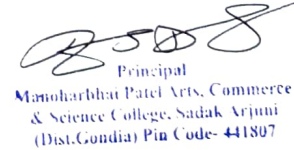 Principal
Manoharbhai Patel Arts, Commerce
& Science College, Sadak Arjuni
(Dist.Gondia) Pin Code- 441807